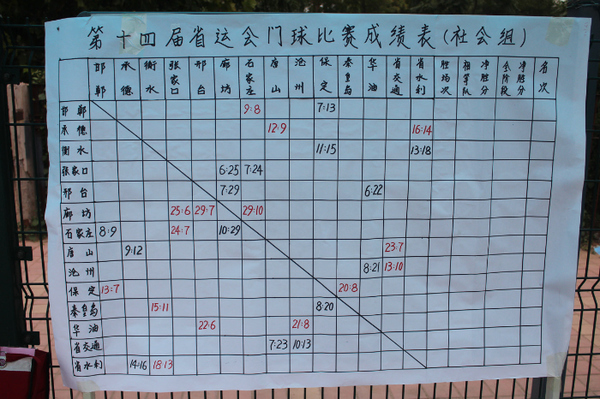 第十四届省运会门球比赛成绩表(社会组)
邯郸 承德 衡水 张家口 邢台 廊坊 石家庄 唐山 沧州 保定 秦皇岛 华油 省交通 省水利 胜场次 相等队 净胜分 全阶段 净胜分 名次
邯郸 9:8 7:13
承德 12:9 16:14
衡水 11:15 13:18
张家口 6:25 7:24
邢台 7:29 6:22
廊坊 25:6 29:7 29:10
石家庄 8:9 24:7 10:29
唐山 9:12 23:7
沧州 8:21 13:10
保定 13:7 20:8
秦皇岛 15:11 8:20
华油 22:6 21:8
省交通 7:23 10:13
省水利 14:16 18:13